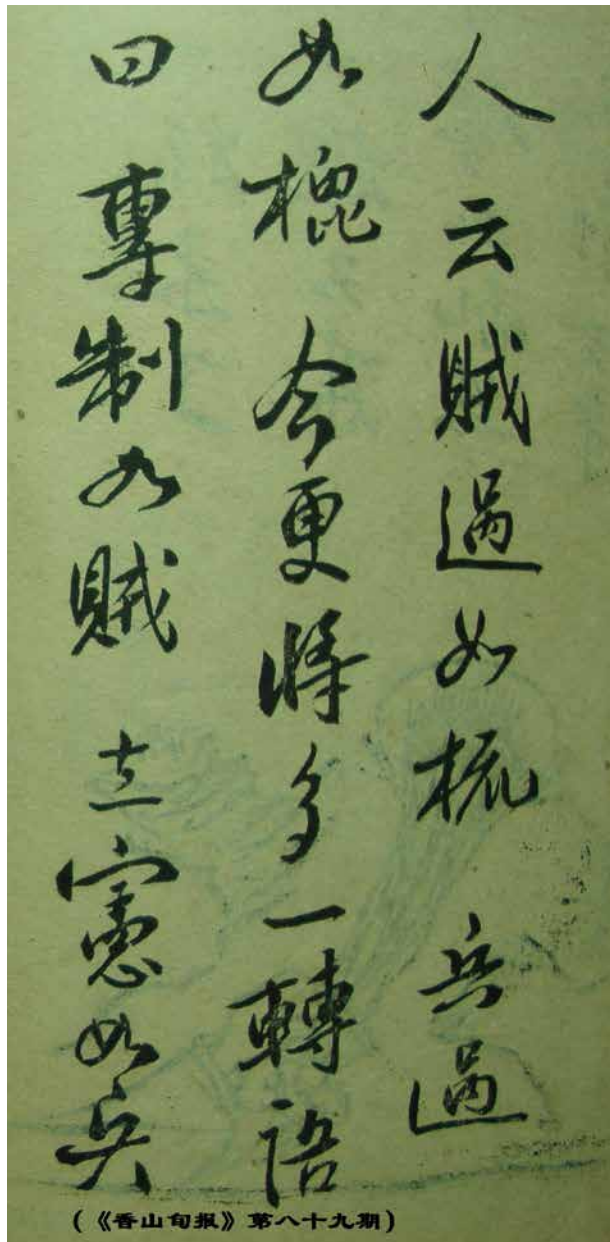 人云賊過如梳 兵過
如榌 今更將多一轉語
曰 專制如賊 立憲如兵
(《香山旬报》第八十九期)